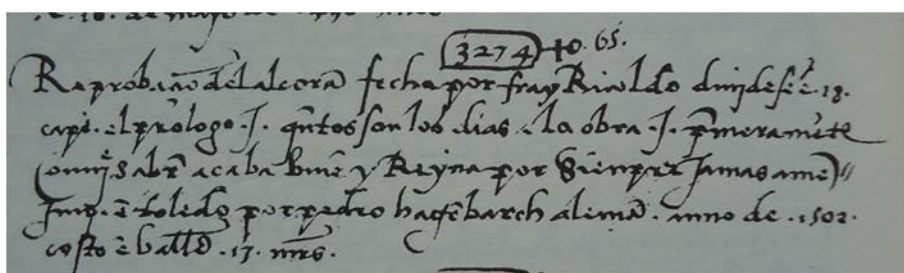 e. 18. de mayo de
3274 to. 65.
Reprobacõ del alcorã fecha por fray Ricoldo diuidesẽ ẽ .18.
capi. el prologo .I. quãtos son los dias. e la obra .I. p̃meramẽte
acaba bien y Reyna por Sienpre Jamas amẽ
Imp. ẽ toledo por pedro hagẽbarch alemã. anno de .1502.
costo ẽ vallid .17. mrs.